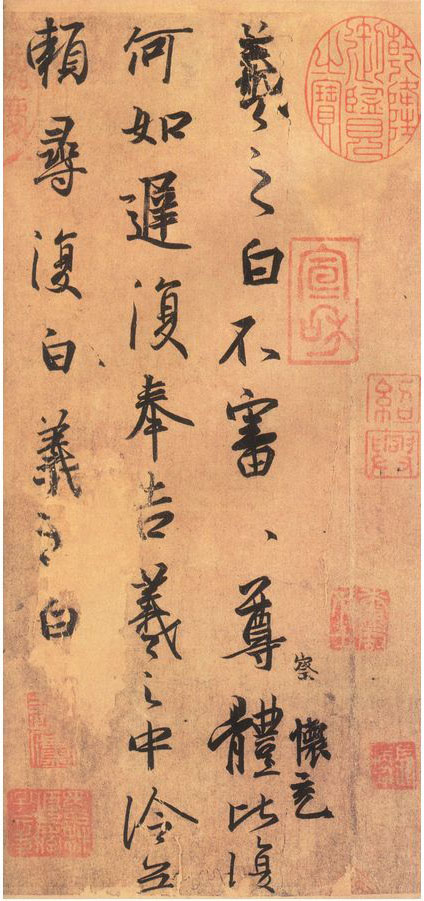 乾隆御覽之寶
紹興
察
懷充
羲之白不審、尊體比復
何如遲復奉告羲之中冷無
賴尋復白羲之白